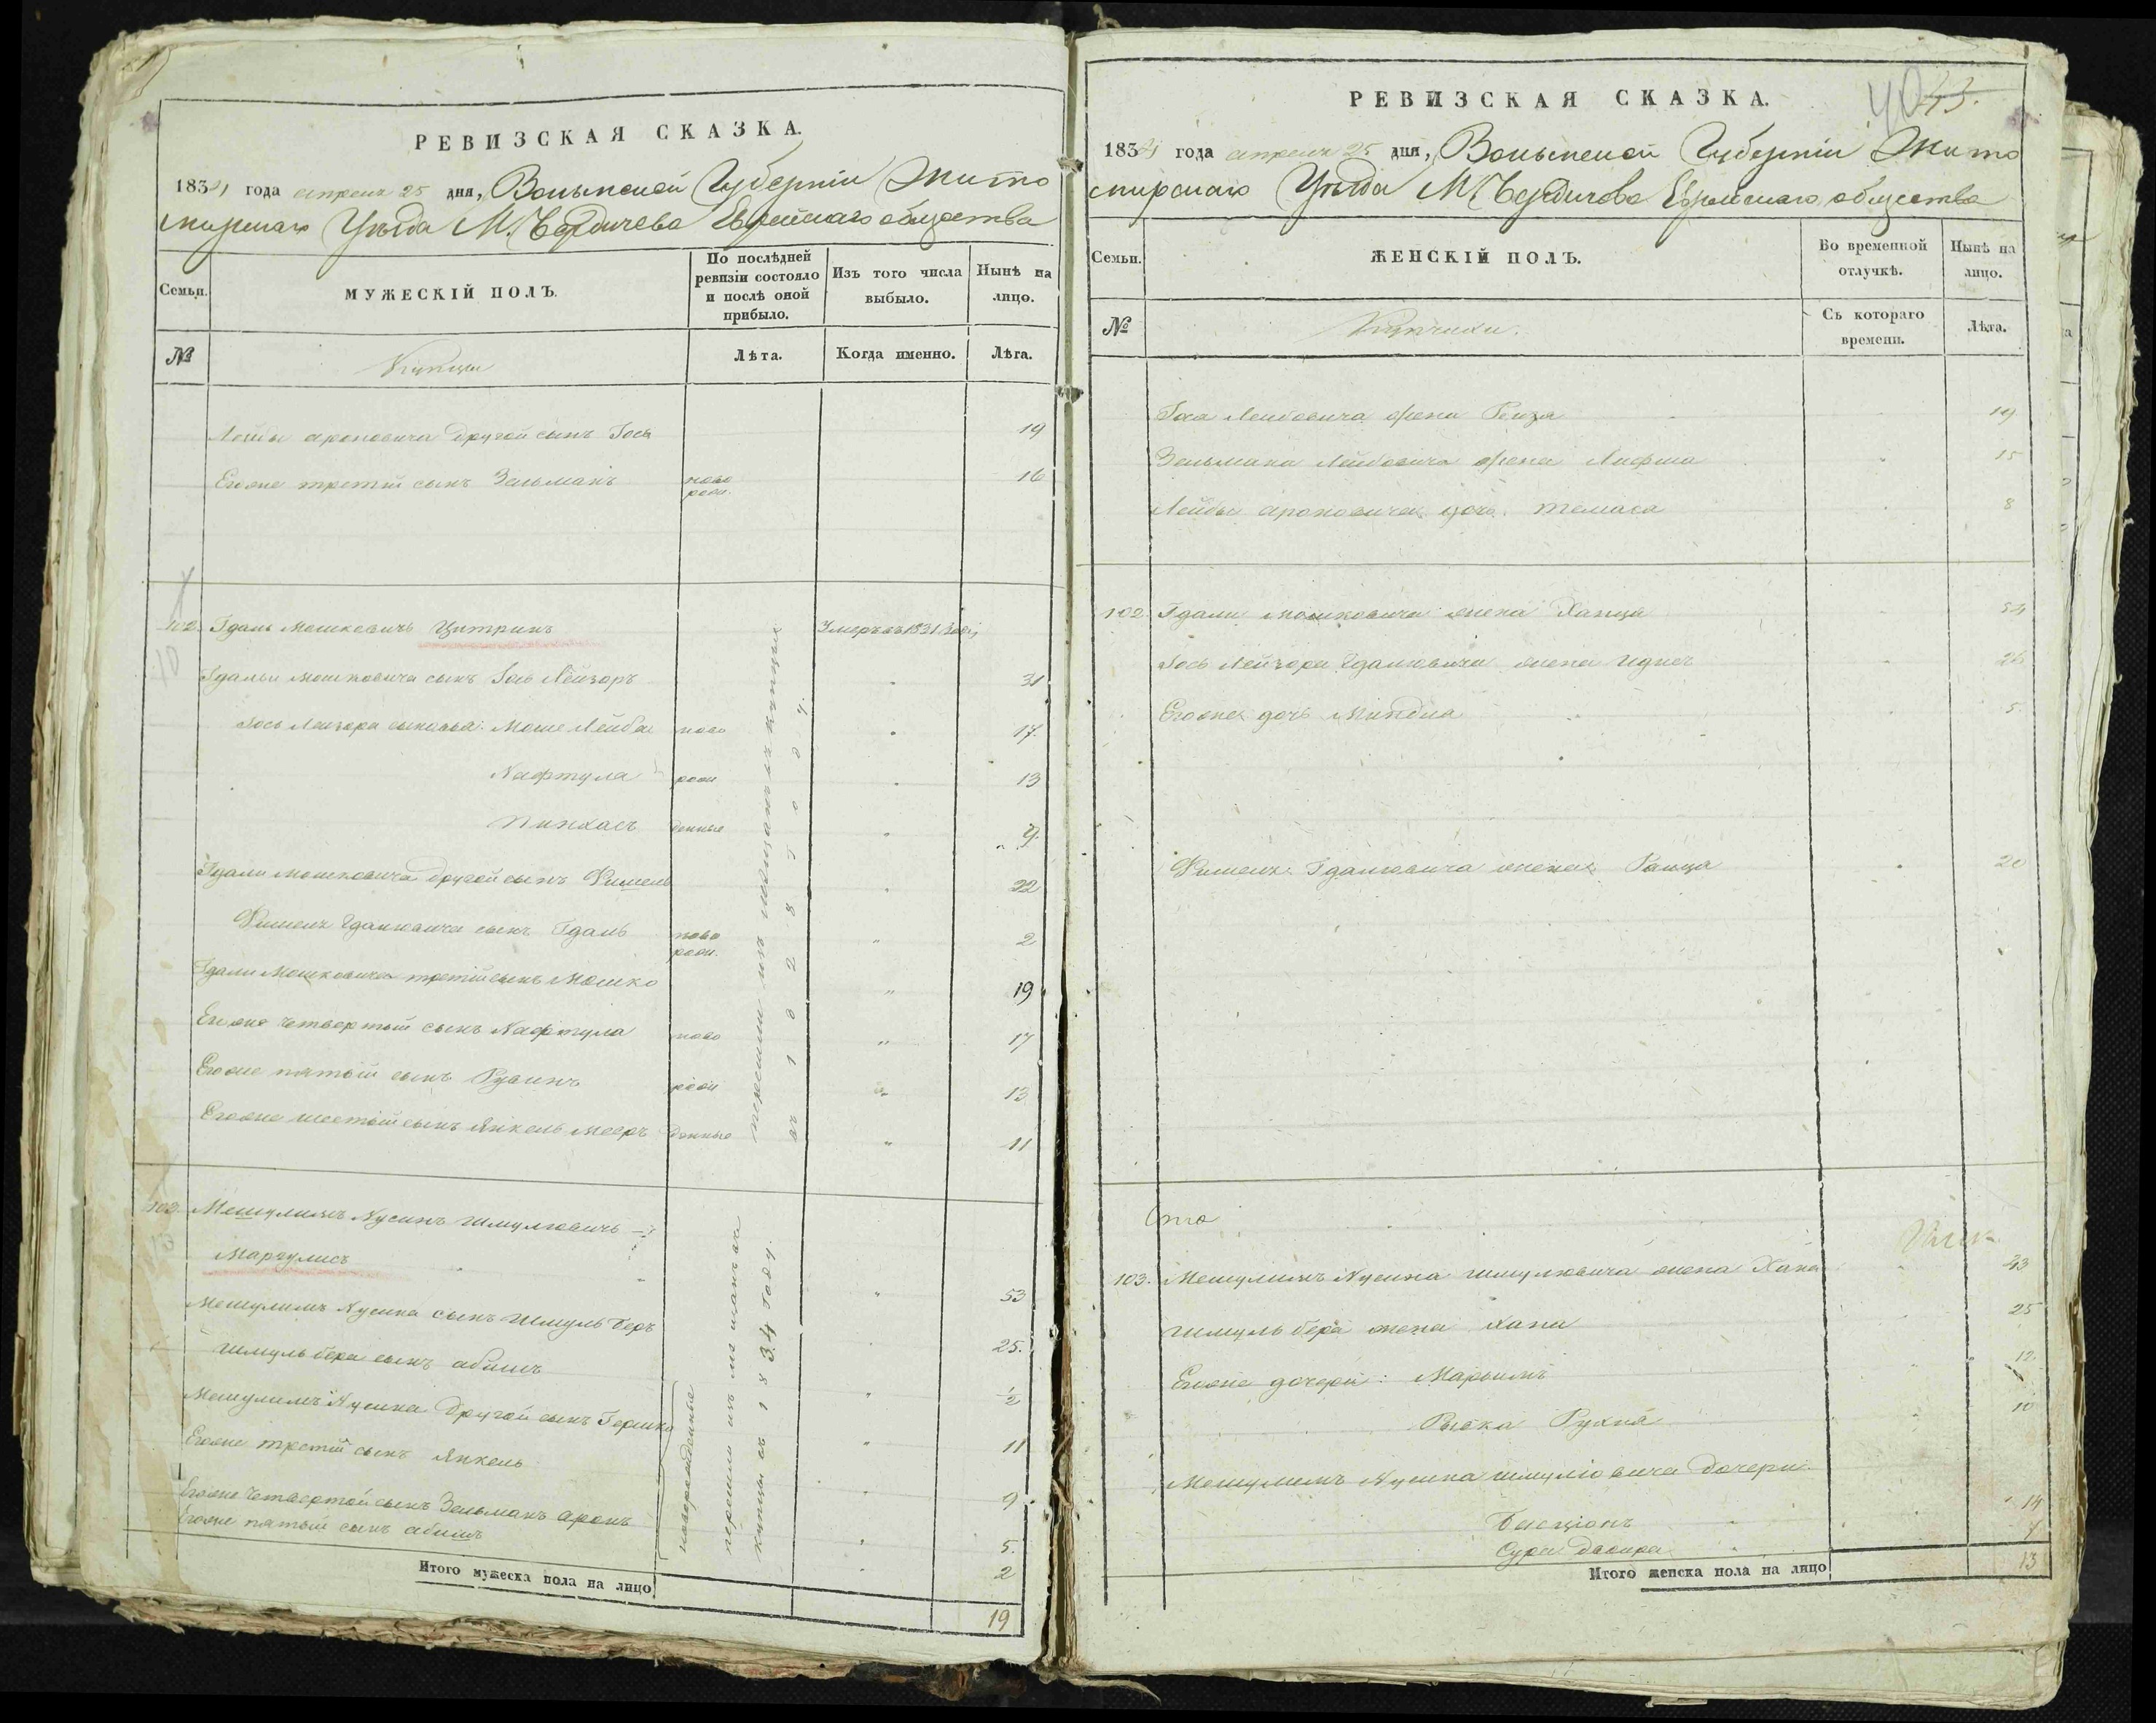 РЕВИЗСКАЯ СКАЗКА.
1834 года апреля 25 дня, Волынской Губернiи Жито
мирскаго Уѣзда М. Бердичева Еврейскаго общества
Семьи.
МУЖЕСКIЙ ПОЛЪ.
По послѣдней ревизiи состояло и послѣ оной прибыло.
Изъ того числа выбыло.
Нынѣ на лицо.
№
Купцы
Лѣта.
Когда именно.
Лѣта.
Лейбы Ароновича другой сынъ Iось 19
Егоже третiй сынъ Зельманъ ново рож. 16
102. Гдаль Мошковичъ Цитринъ Умеръ въ 1831 году
Гдальи Мошковича сынъ Iось Лейзоръ 31
Iось Лейзора сыновья: Моше Лейба ново 17.
Нафтула рож 13
Пинхасъ денные 9.
Гдали Мошковича другой сынъ Фишель 22
Фишель Гдалювича сынъ Гдаль ново рож. 2
Гдали Мошковича третiй сынъ Мошко 19
Егоже четвертый сынъ Нафтула ново 17
Егоже пятый сынъ Рувинъ рож 13
Егоже шестый сынъ Янкель Мееръ денные 11
перешли изъ мещанъ въ купцы
въ 1828 году.
103. Мешулимъ Нусинъ Шмулювичъ
Маргулисъ 53
Мешулимъ Нусина сынъ Шмуль Беръ 25.
Шмуль Бера сынъ Абишъ 1/2
Мешулимъ Нусина другой сынъ Гершко 11
Егоже третiй сынъ Янкель 9
Егоже четвертой сынъ Зельманъ Аронъ 5.
Егоже пятый сынъ Абишъ 2
новорожденные
перешли изъ мещанъ въ
купцы въ 1834 году.
Итого мужеска пола на лицо
19
РЕВИЗСКАЯ СКАЗКА.
40 43.
1834 года апреля 25 дня, Волынской Губернiи Жито
мирскаго Уѣзда М. Бердичова Еврейскаго общества
Семьи.
ЖЕНСКIЙ ПОЛЪ.
Во временной отлучкѣ.
Нынѣ на лицо.
№
Купчихи.
Съ котораго времени.
Лѣта.
Iося Лейбовича жена Рейза 19
Зельмана Лейбовича жена 15
Лейбы Ароновича дочь 8
102. Гдали Мошковича жена Ханца 54
Iось Лейзора Гдалювича жена 26
Егоже дочь Миндля 5.
Фишель Гдалювича жена 20
103. Мешулимъ Нусина Шмулювича жена Хана 43
Шмуль Бера жена Хана 25
Егоже дочери: Марьимъ 12
Рывка Рухля 10
Мешулимъ Нусина Шмулювича дочери
Бенцiонъ 14
Сура Двойра 7
Итого женска пола на лицо
13